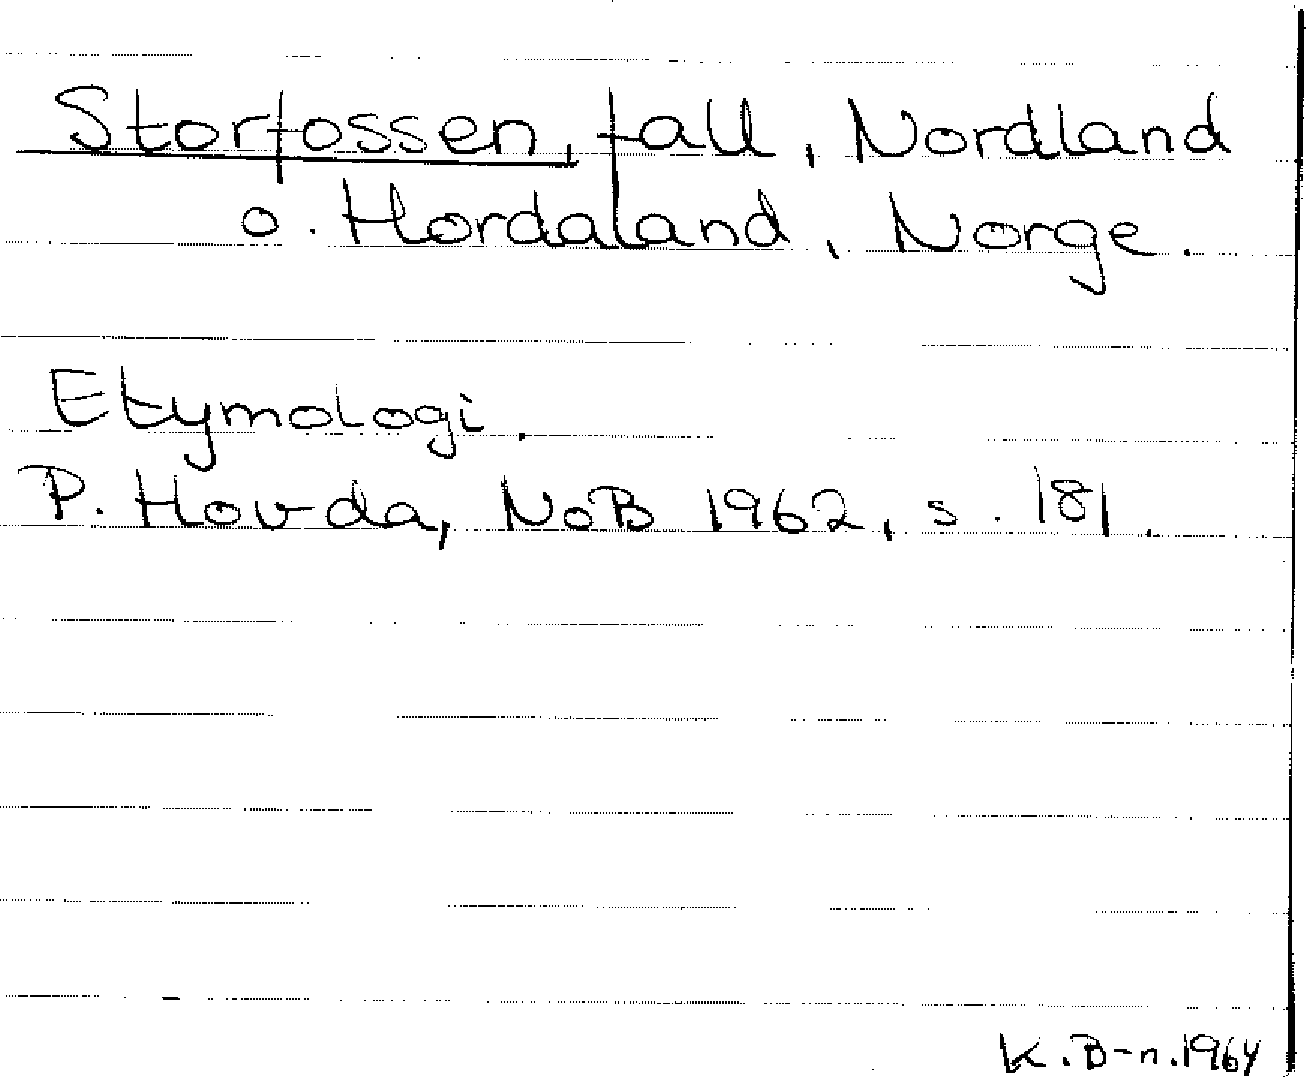 Storfossen, fall, Nordland
o. Hordaland, Norge.
Etymologi.
P. Hovda, NoB 1962, s. 181.
K.B-n.1964